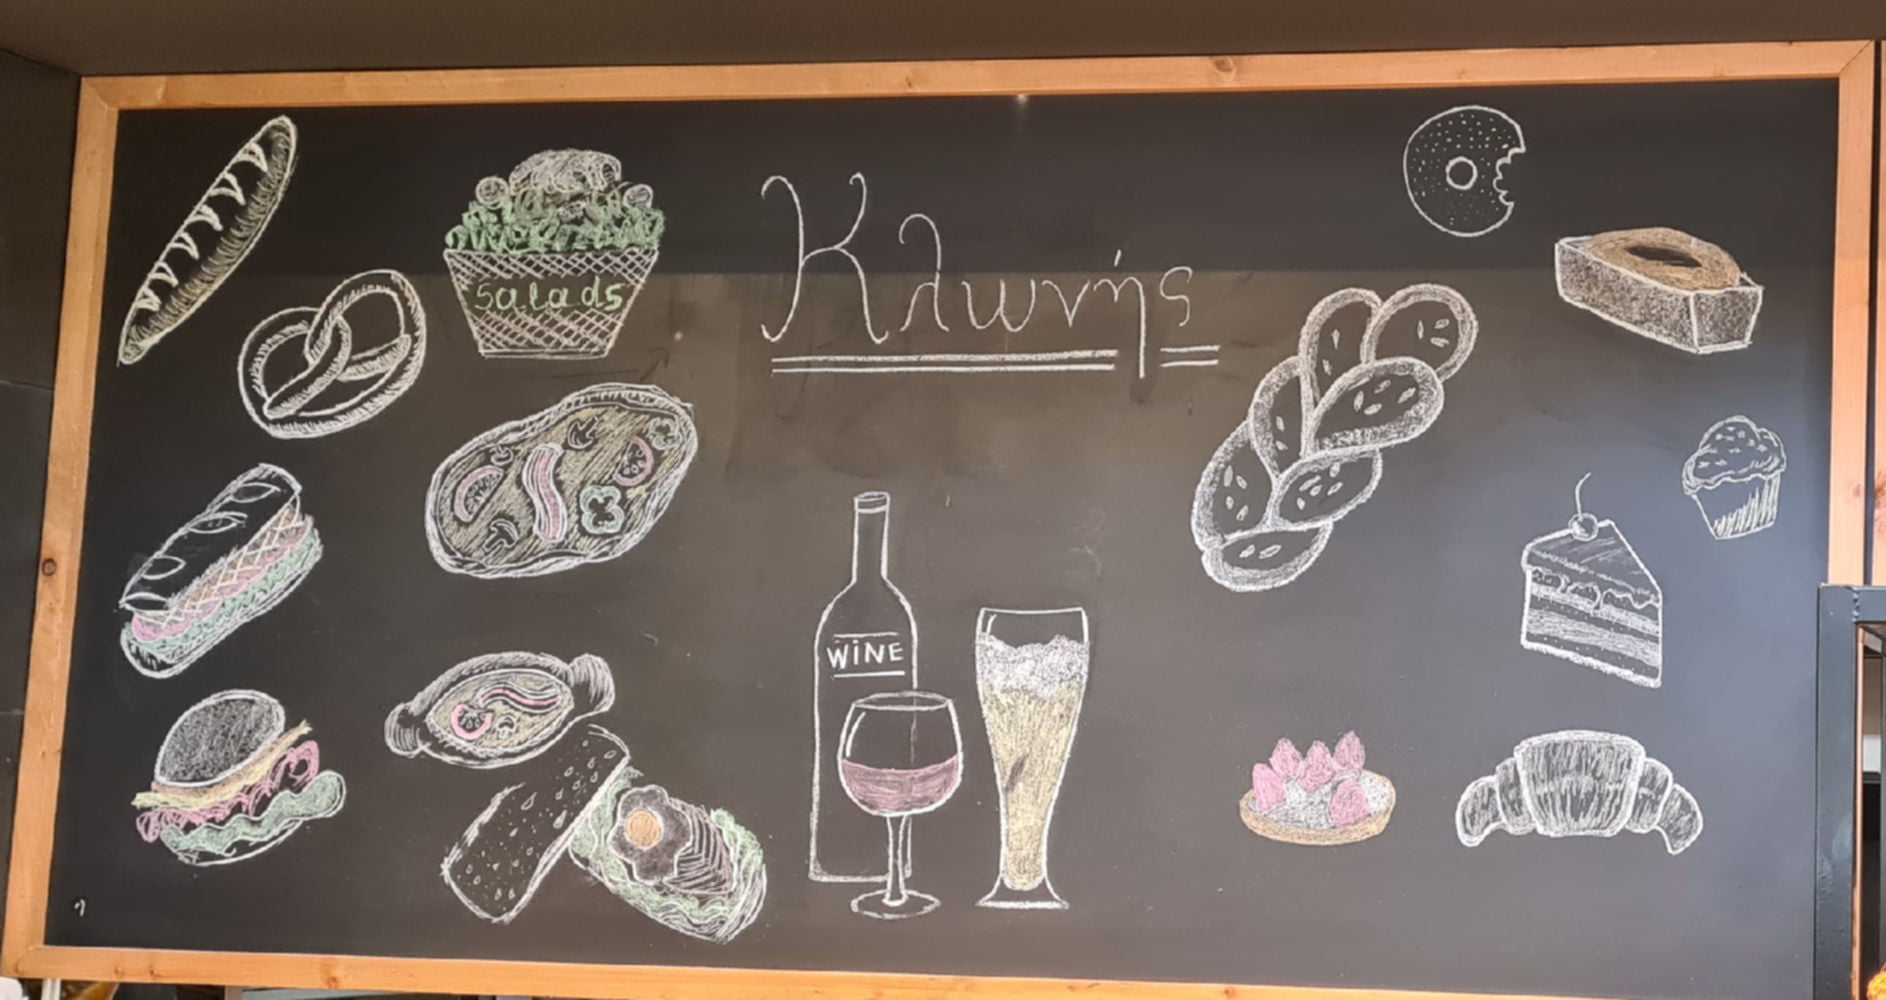 Κλωνής
Salads
WINE